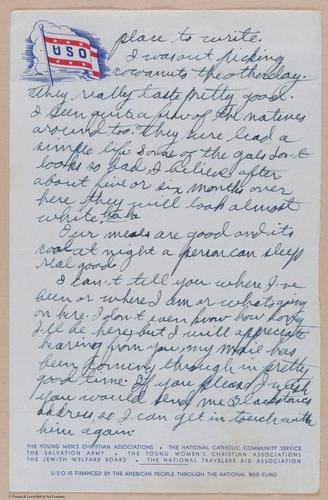 USO
place to write.
I was out picking
cocoanuts the other day.
They really taste pretty good.
I seen quite a few of the natives
around too. They sure lead a
simple life. Some of the gals don't
look so bad, I believe after
about five or six months over
here they will look almost
white. ha ha
Our meals are good and it's
cool at night a person can sleep
real good.
I can't tell you where I've
been or where I am or whats going
on here. I don't even know how long
I'll be here, but I will appreciate
hearing from you, my mail has
been coming through in pretty
good time. If you please I wish
you would send me Blackstones
address, so I can get in touch with
him again.
THE YOUNG MEN'S CHRISTIAN ASSOCIATIONS • THE NATIONAL CATHOLIC COMMUNITY SERVICE
THE SALVATION ARMY • THE YOUNG WOMEN'S CHRISTIAN ASSOCIATIONS
THE JEWISH WELFARE BOARD • THE NATIONAL TRAVELERS AID ASSOCIATION
USO IS FINANCED BY THE AMERICAN PEOPLE THROUGH THE NATIONAL WAR FUND